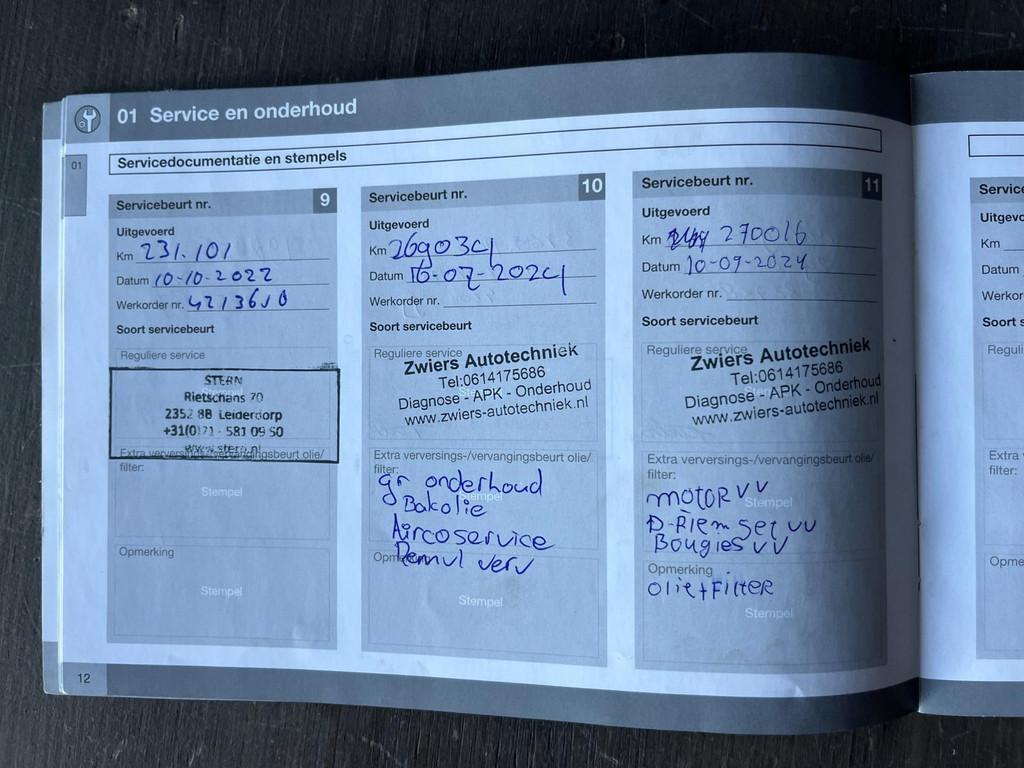 01 Service en onderhoud
01
Servicedocumentatie en stempels
Servicebeurt nr. 9
Uitgevoerd
Km 231.101
Datum 10-10-2022
Werkorder nr. 4213610
Soort servicebeurt
Reguliere service
STERN
Rietschans 70
2352 BB Leiderdorp
+31(0)71 - 581 09 50
www.stern.nl
Extra verversings-/vervangingsbeurt olie/
filter:
Stempel
Opmerking
Stempel
Servicebeurt nr. 10
Uitgevoerd
Km 269034
Datum 16-07-2024
Werkorder nr.
Soort servicebeurt
Reguliere service
Zwiers Autotechniek
Tel:0614175686
Diagnose - APK - Onderhoud
www.zwiers-autotechniek.nl
Extra verversings-/vervangingsbeurt olie/
filter:
gr onderhoud
Stempel
Bakolie
Aircoservice
Remvl verv
Stempel
Servicebeurt nr. 11
Uitgevoerd
Km 270016
Datum 10-09-2024
Werkorder nr.
Soort servicebeurt
Reguliere service
Zwiers Autotechniek
Tel:0614175686
Diagnose - APK - Onderhoud
www.zwiers-autotechniek.nl
Extra verversings-/vervangingsbeurt olie/
filter:
motor vv
Stempel
D-Riem set vv
Bougies vv
Opmerking
Olie + Filter
Stempel
12